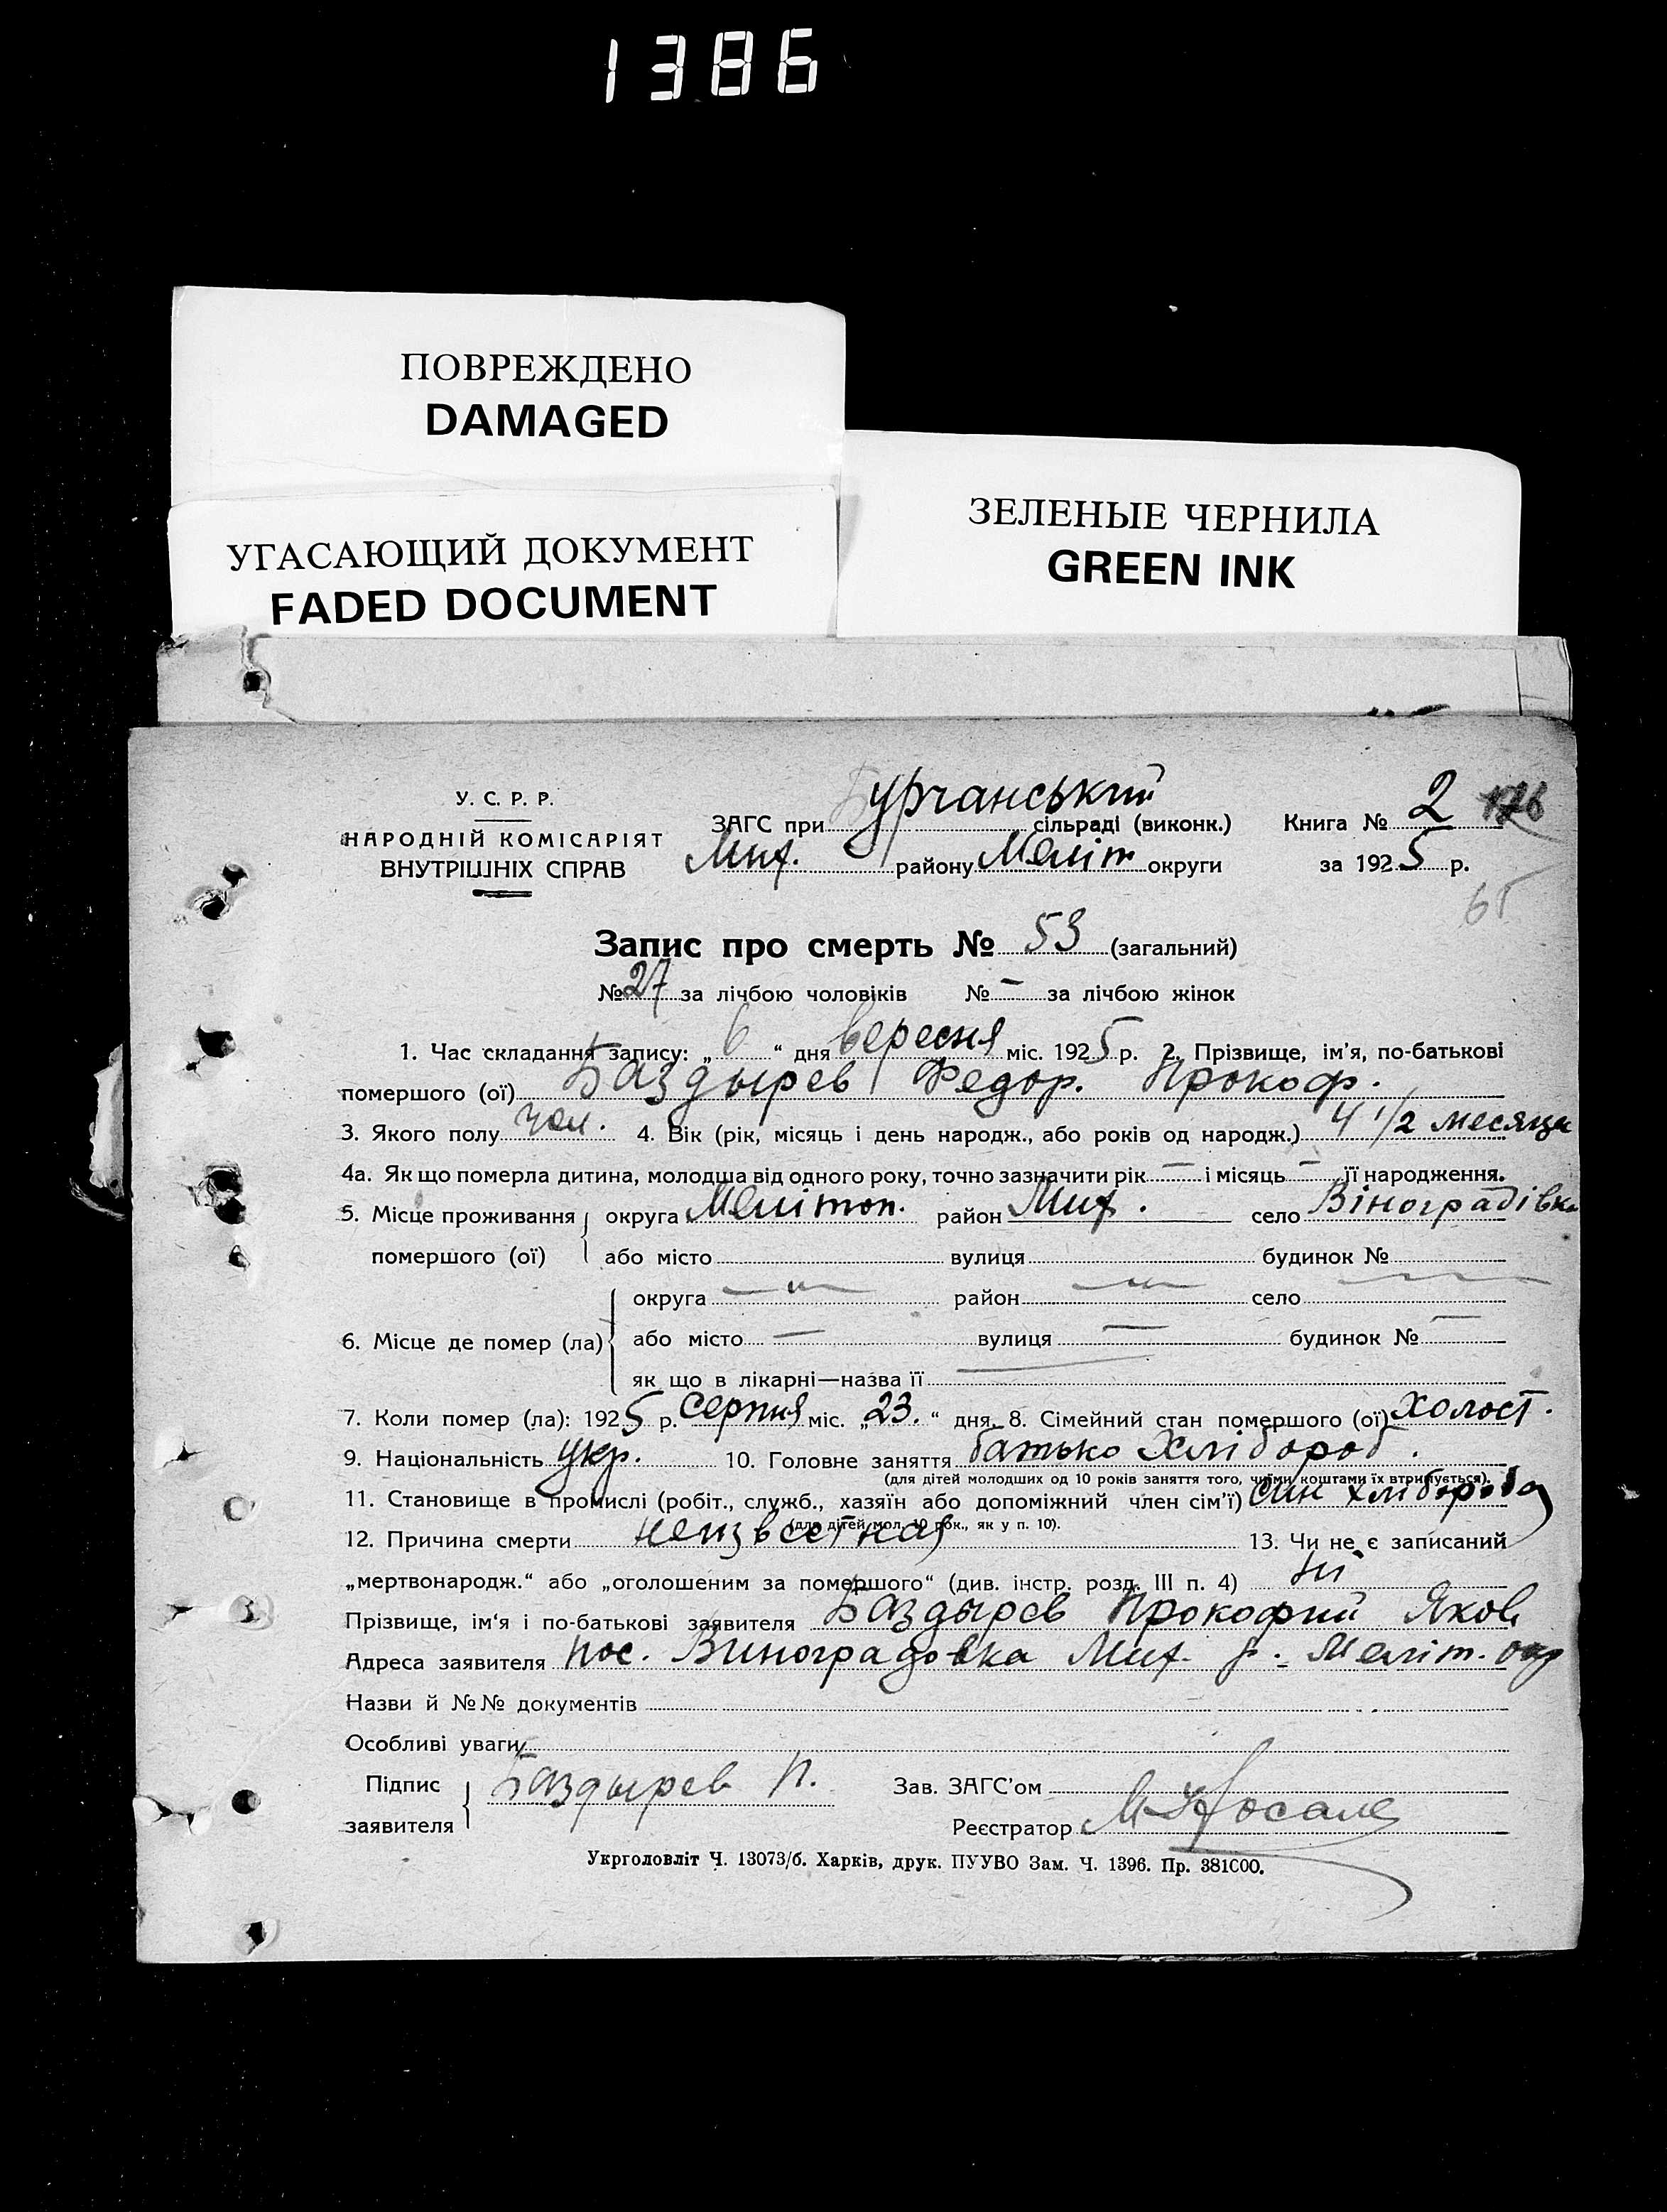 1386
ПОВРЕЖДЕНО
DAMAGED
УГАСАЮЩИЙ ДОКУМЕНТ
FADED DOCUMENT
ЗЕЛЕНЫЕ ЧЕРНИЛА
GREEN INK
У. С. Р. Р.
НАРОДНІЙ КОМІСАРІЯТ
ВНУТРІШНІХ СПРАВ
ЗАГС при Бурчанський сільраді (виконк.)
Мих. району Меліт округи
Книга № 2
за 1925 р.
65
Запис про смерть № 53 (загальний)
№ 27 за лічбою чоловіків № – за лічбою жінок
1. Час складання запису: „6“ дня вересня міс. 1925 р. 2. Прізвище, ім’я, по-батькові
помершого (ої) Баздырев Федор. Прокоф.
3. Якого полу чол. 4. Вік (рік, місяць і день народж., або років од народж.) 4 1/2 месяца
4а. Як що померла дитина, молодша від одного року, точно зазначити рік – і місяць – її народження.
5. Місце проживання помершого (ої) округа Мелітоп. район Мих. село Віноградівка
або місто вулиця будинок №
6. Місце де помер (ла) округа — „ — район — „ — село
або місто — вулиця — будинок № —
як що в лікарні—назва її —
7. Коли помер (ла): 1925 р. серпня міс. „23.“ дня. 8. Сімейний стан помершого (ої) холост.
9. Національність укр. 10. Головне заняття батько хлібороб.
(для дітей молодших од 10 років заняття того, чиїми коштами їх втримується).
11. Становище в промислі (робіт., служб., хазяїн або допоміжний член сім’ї) син хлібороба
(для дітей мол. 10 рок., як у п. 10).
12. Причина смерти неизвестная 13. Чи не є записаний
„мертвонародж.“ або „оголошеним за помершого“ (див. інстр. розд. III п. 4) ні
Прізвище, ім‘я і по-батькові заявителя Баздырев Прокофий Яков
Адреса заявителя пос. Виноградовка Мих. р. Меліт. окр
Назви й №№ документів
Особливі уваги
Підпис заявителя Баздырев П.
Зав. ЗАГС’ом
Реєстратор
Укрголовліт Ч. 13073/б. Харків, друк. ПУУВО Зам. Ч. 1396. Пр. 381С00.